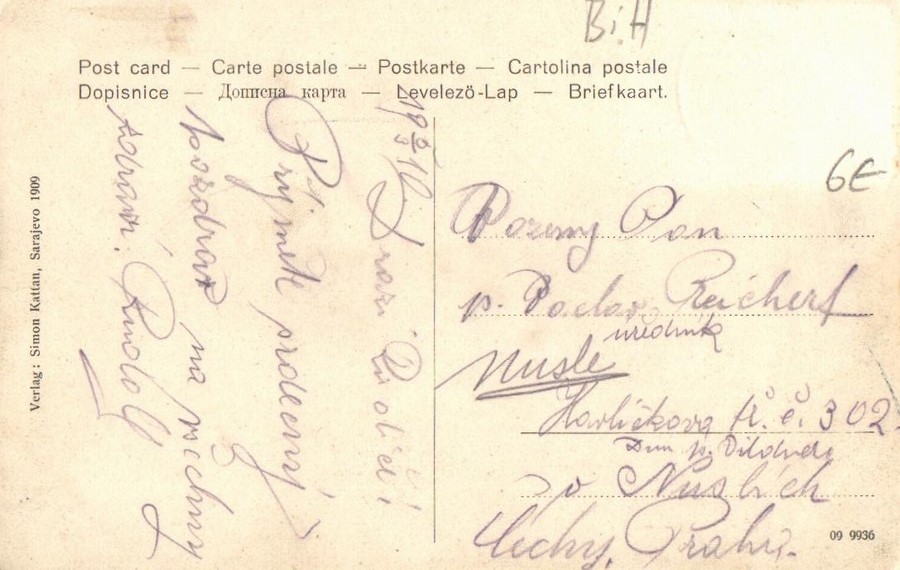 BiH
Post card — Carte postale — Postkarte — Cartolina postale
Dopisnice — Дописна карта — Levelezö-Lap — Briefkaart.
Verlag: Simon Kattan, Sarajevo 1909
19 9/9 10
Drazi Rodiče!
Prijměte srdečný
pozdrav na všechny
zdraví. Rudolf
6€
Pan
p. Václav Reichert
úředník
Nusle
Havličkova tř. č. 302
Dům p.
v Nuslích
Čechy, Praha.
09 9936